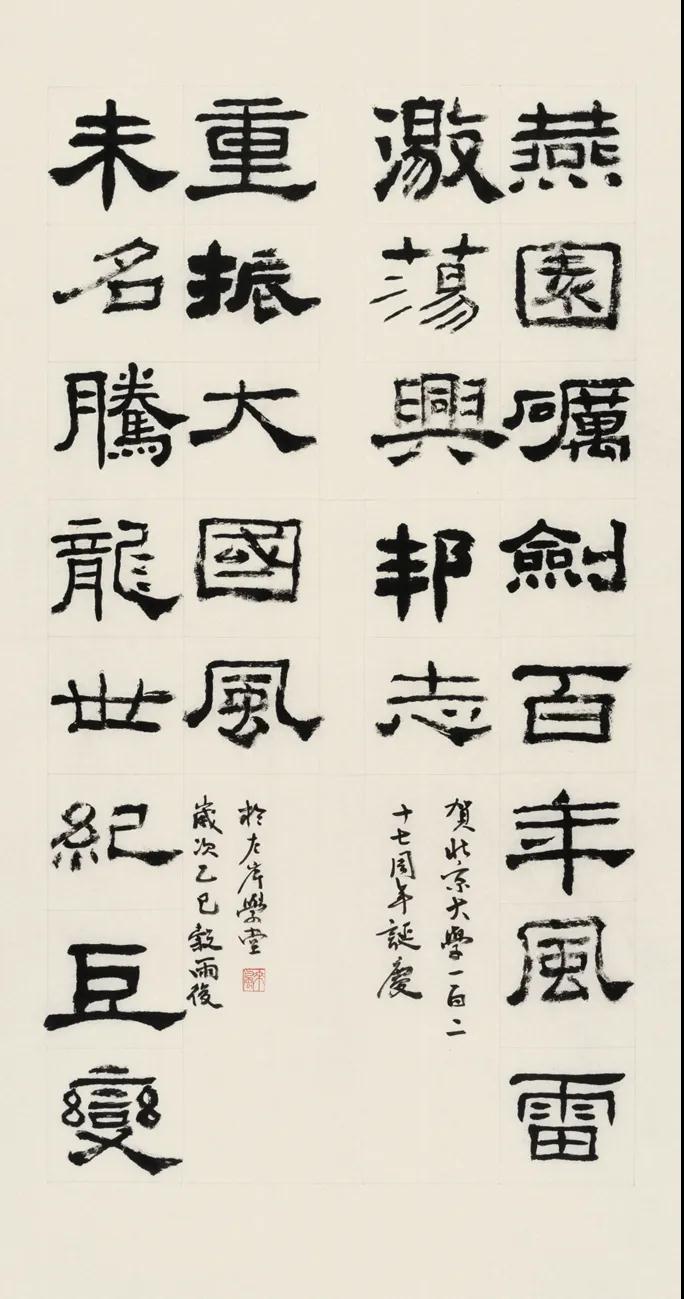 燕園礪劍百年風雷
激蕩興邦志
賀北京大學一百二
十七周年誕慶
未名騰龍世紀巨變
重振大國風
歲次乙巳穀雨後
於左岸學堂